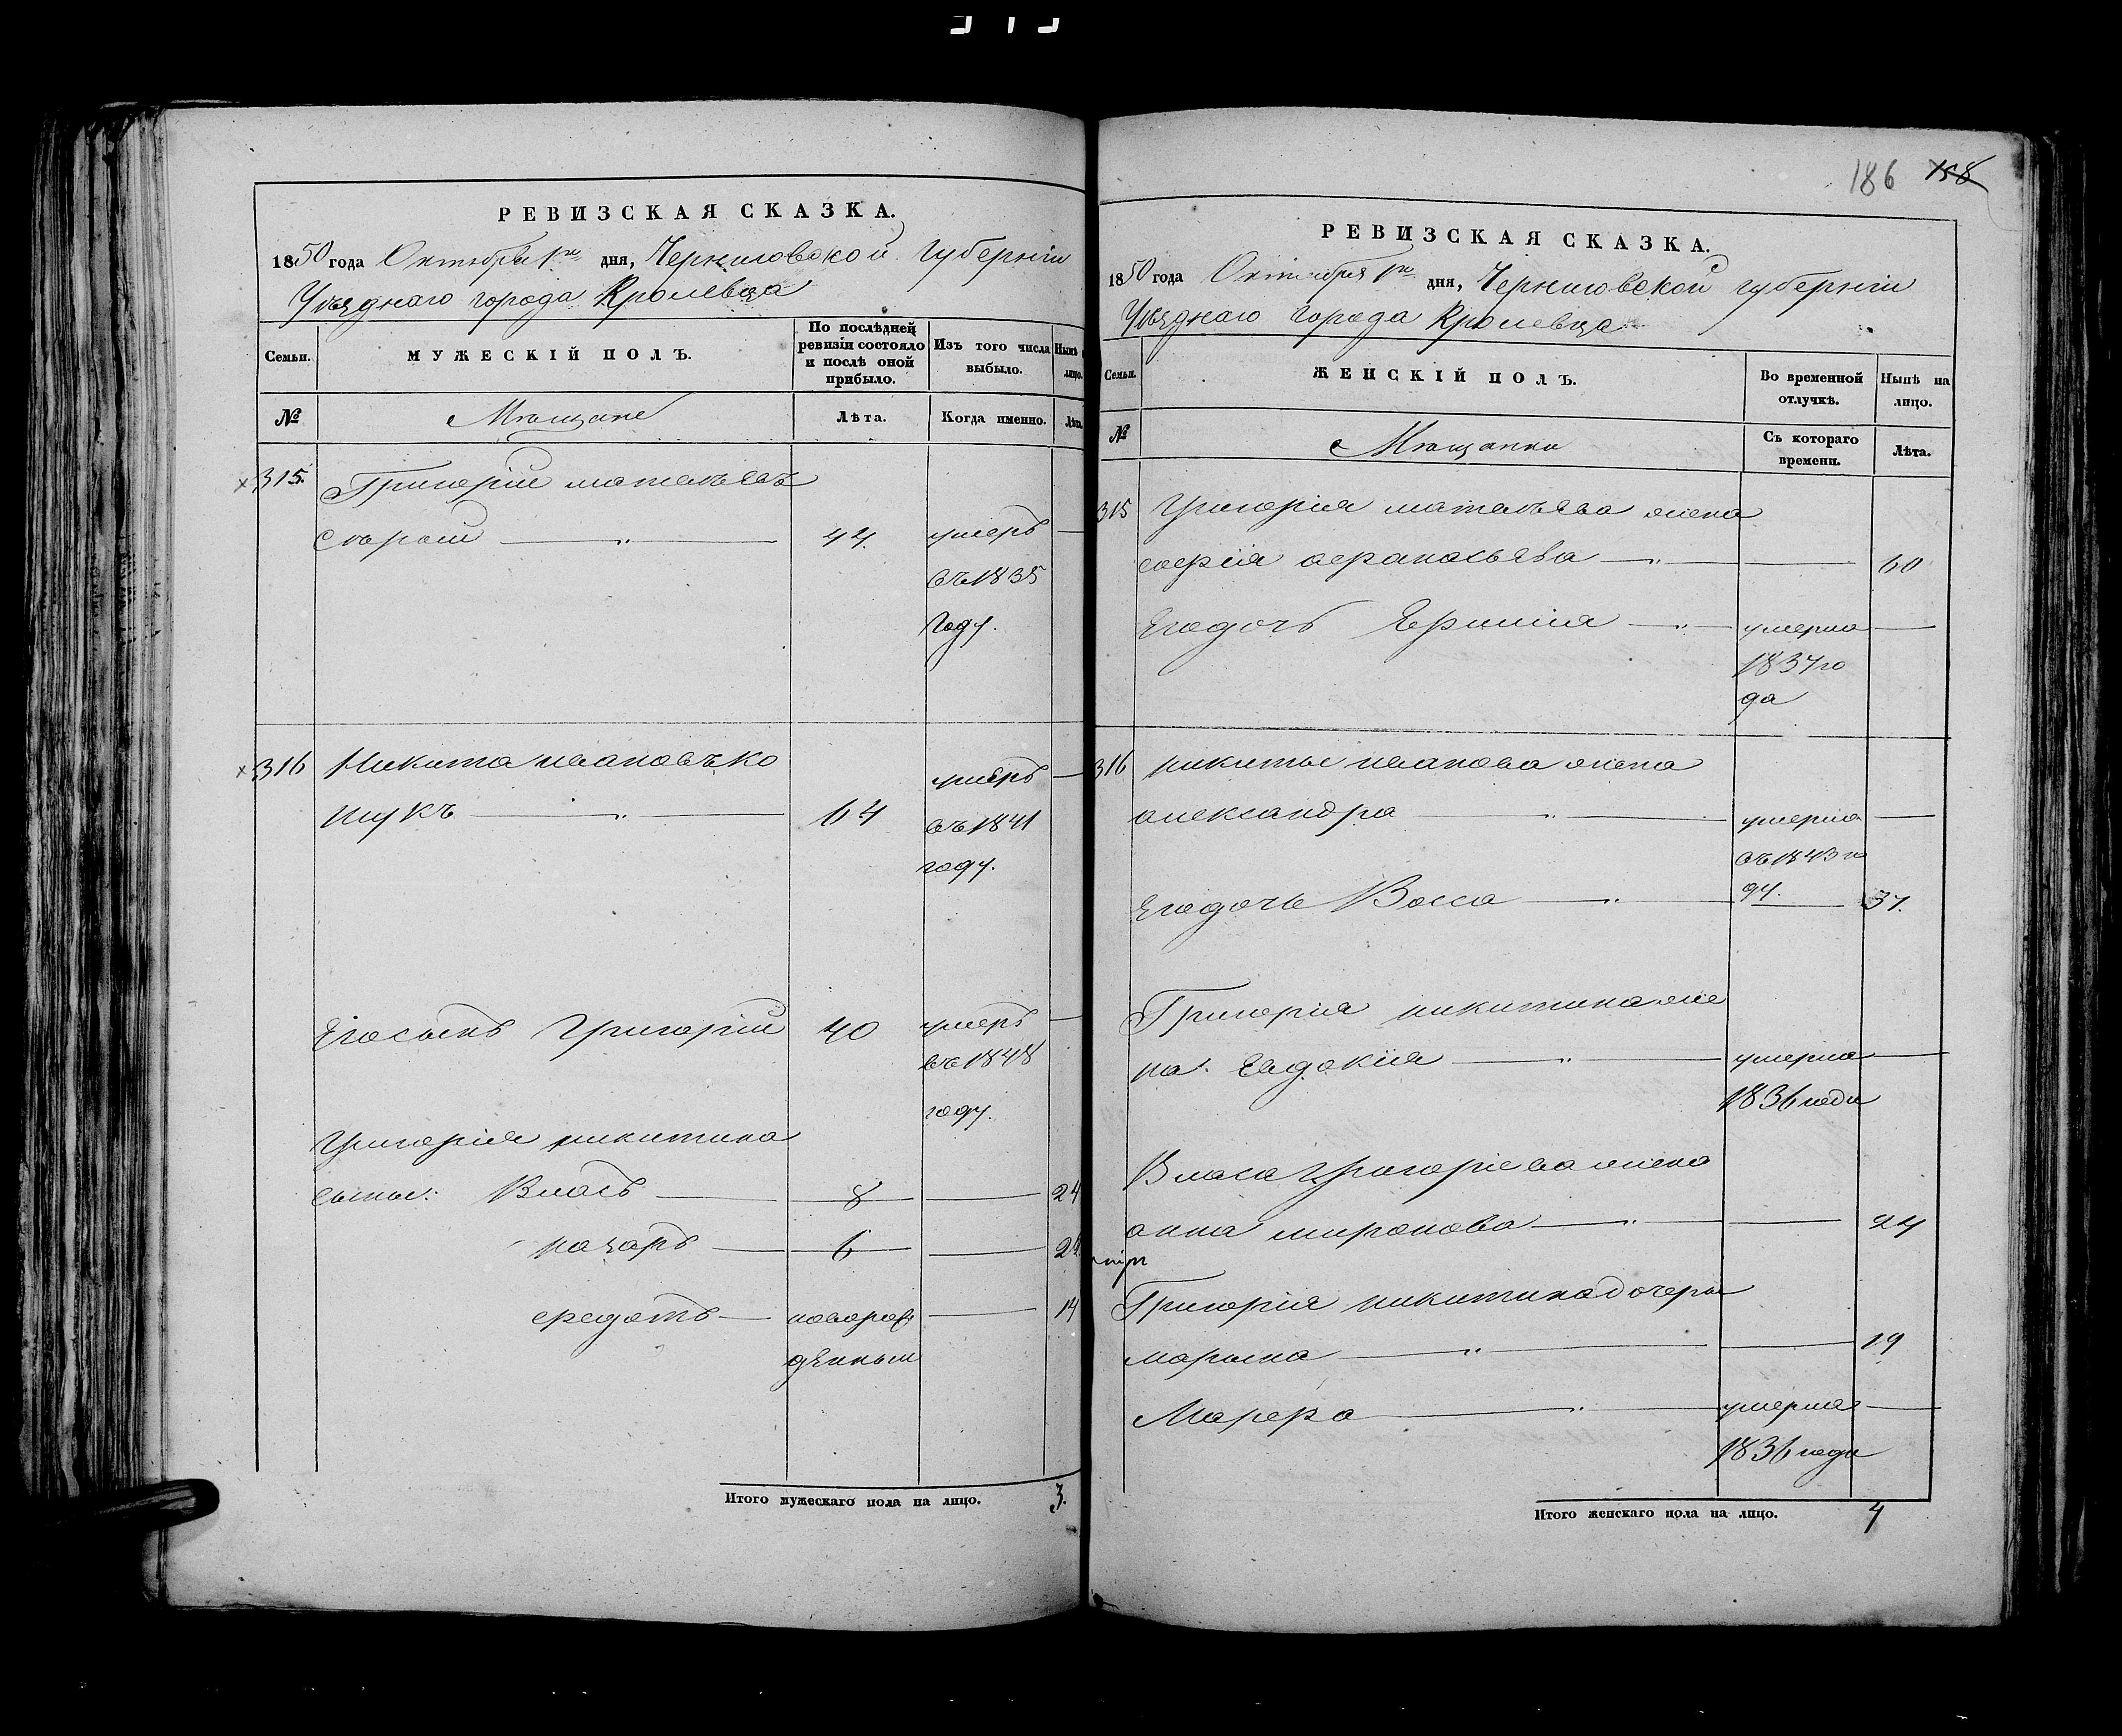 186 158
РЕВИЗСКАЯ СКАЗКА.
1850 года Октября 1го дня, Черниговской Губерніи
Уѣзднаго города Кролевца
Семьи.
МУЖЕСКІЙ ПОЛЪ.
По послѣдней ревизіи состояло и послѣ оной прибыло.
Изъ того числа выбыло.
Нынѣ
лицо.
№
Мѣщане
Лѣта.
Когда именно.
Лѣта.
315. Григорій матвѣевъ
44. умеръ —
въ 1835
году.
316 Никита ивановъ ко
умеръ —
шукъ — 64
въ 1841
году.
Его сынъ Григорій 40 умеръ —
въ 1848
году.
Григорія никитина
сыны: Власъ — 8 — 24
назаръ — 6 — 22
ѳедотъ — новорож — 14
денный
Итого мужескаго пола на лицо. 3.
РЕВИЗСКАЯ СКАЗКА.
1850 года Октября 1го дня, Черниговской губерніи
Уѣзднаго города Кролевца
Семьи.
ЖЕНСКІЙ ПОЛЪ.
Во временной отлучкѣ.
Нынѣ на лицо.
№
Мѣщанки
Съ котораго времени.
Лѣта.
315 Григорія матвѣева жена
софія афанасьева — — 60
Его дочь Ефимія — умерла —
1837 го
да
316 никиты иванова жена
александра — умерла —
въ 1843 го
ду.
Его дочь Васса — — 37.
Григорія никитина же
на: Евдокія — умерла —
1836 года
Власа Григоріева жена
анна миронова — — 24
Григорія никитина дочери
марына — — 19
Марфа — умерла —
1836 года
Итого женскаго пола на лицо. 4